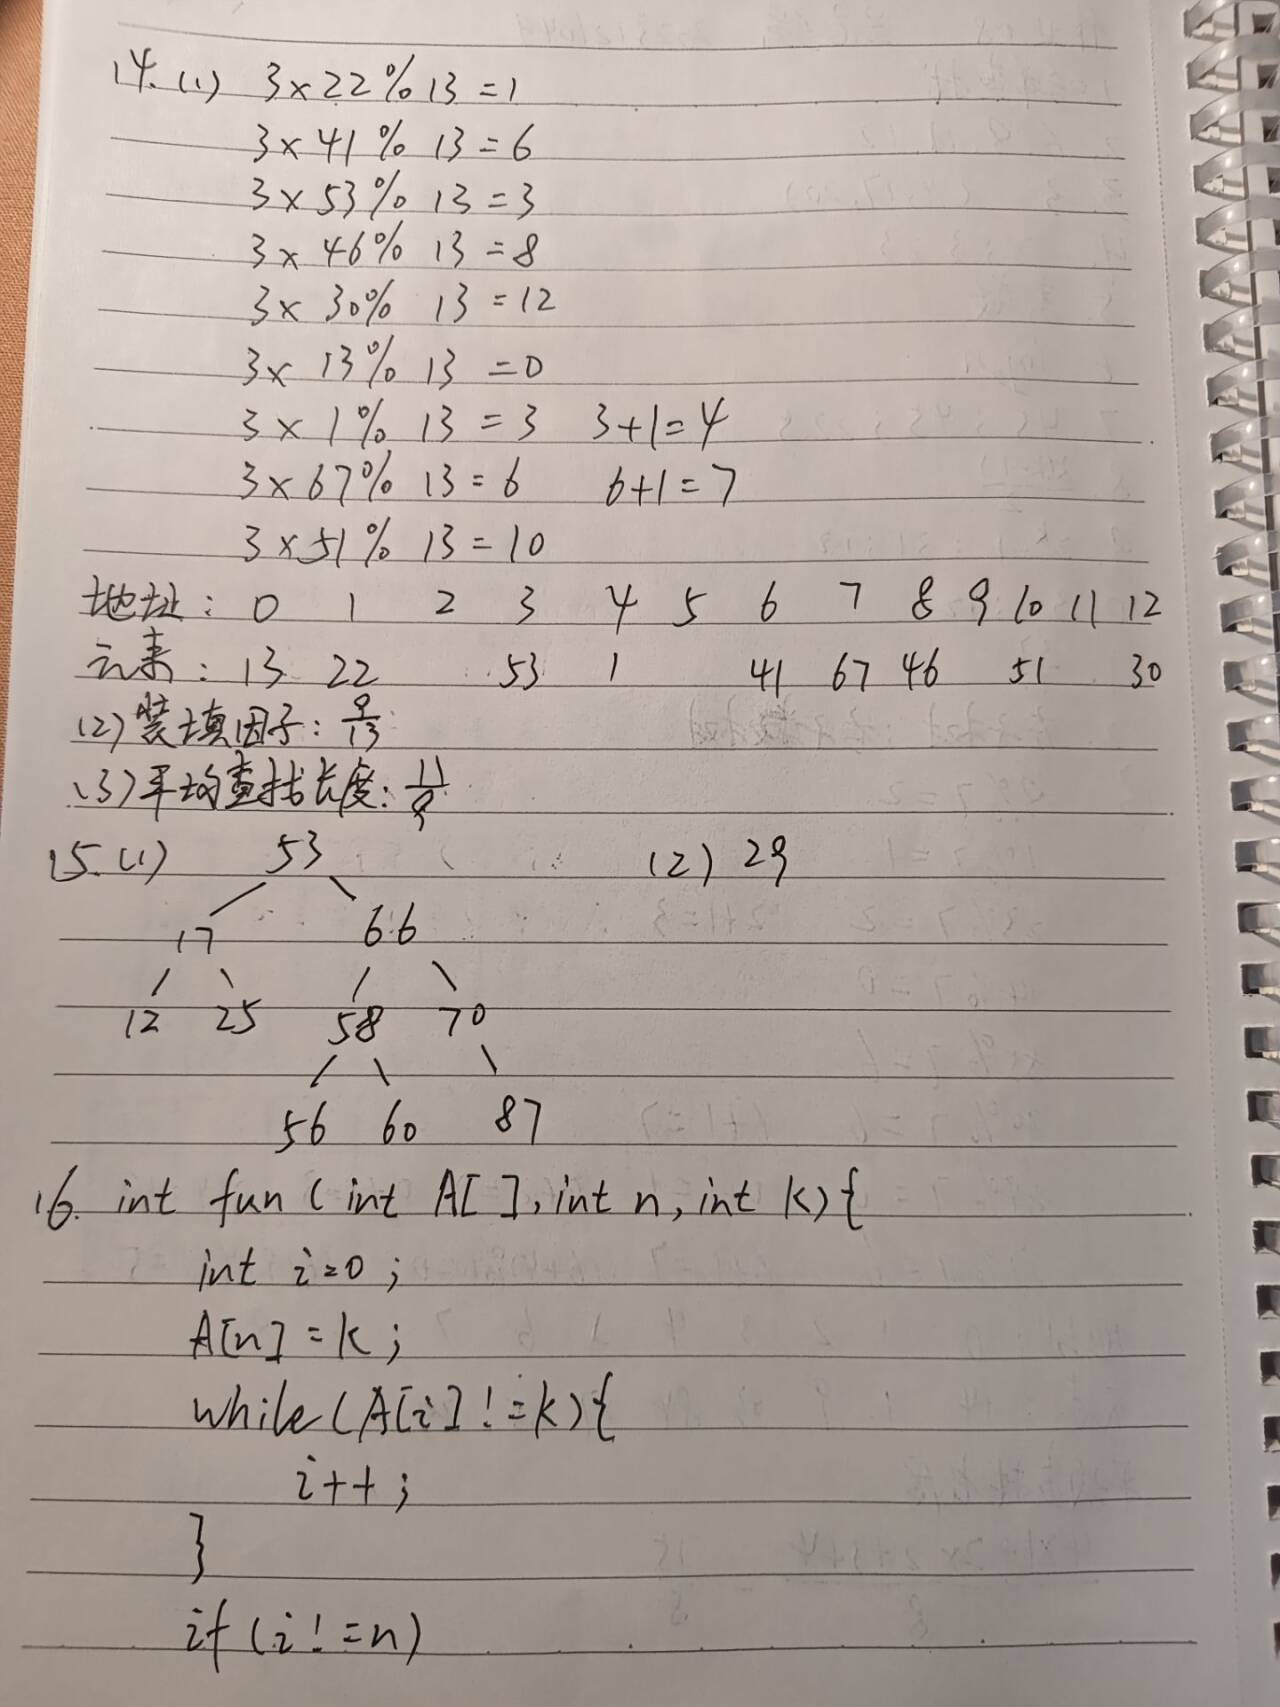 14.(1) 3×22%13=1
3×41%13=6
3×53%13=3
3×46%13=8
3×30%13=12
3×13%13=0
3×1%13=3 3+1=4
3×67%13=6 6+1=7
3×51%13=10
地址: 0 1 2 3 4 5 6 7 8 9 10 11 12
元素: 13 22 53 1 41 67 46 51 30
(2)装填因子: 9/13
(3)平均查找长度: 11/9
15.(1) 53 (2) 29
17 66
12 25 58 70
56 60 87
16. int fun(int A[],int n,int k){
int i=0;
A[n]=k;
while(A[i]!=k){
i++;
}
if(i!=n)